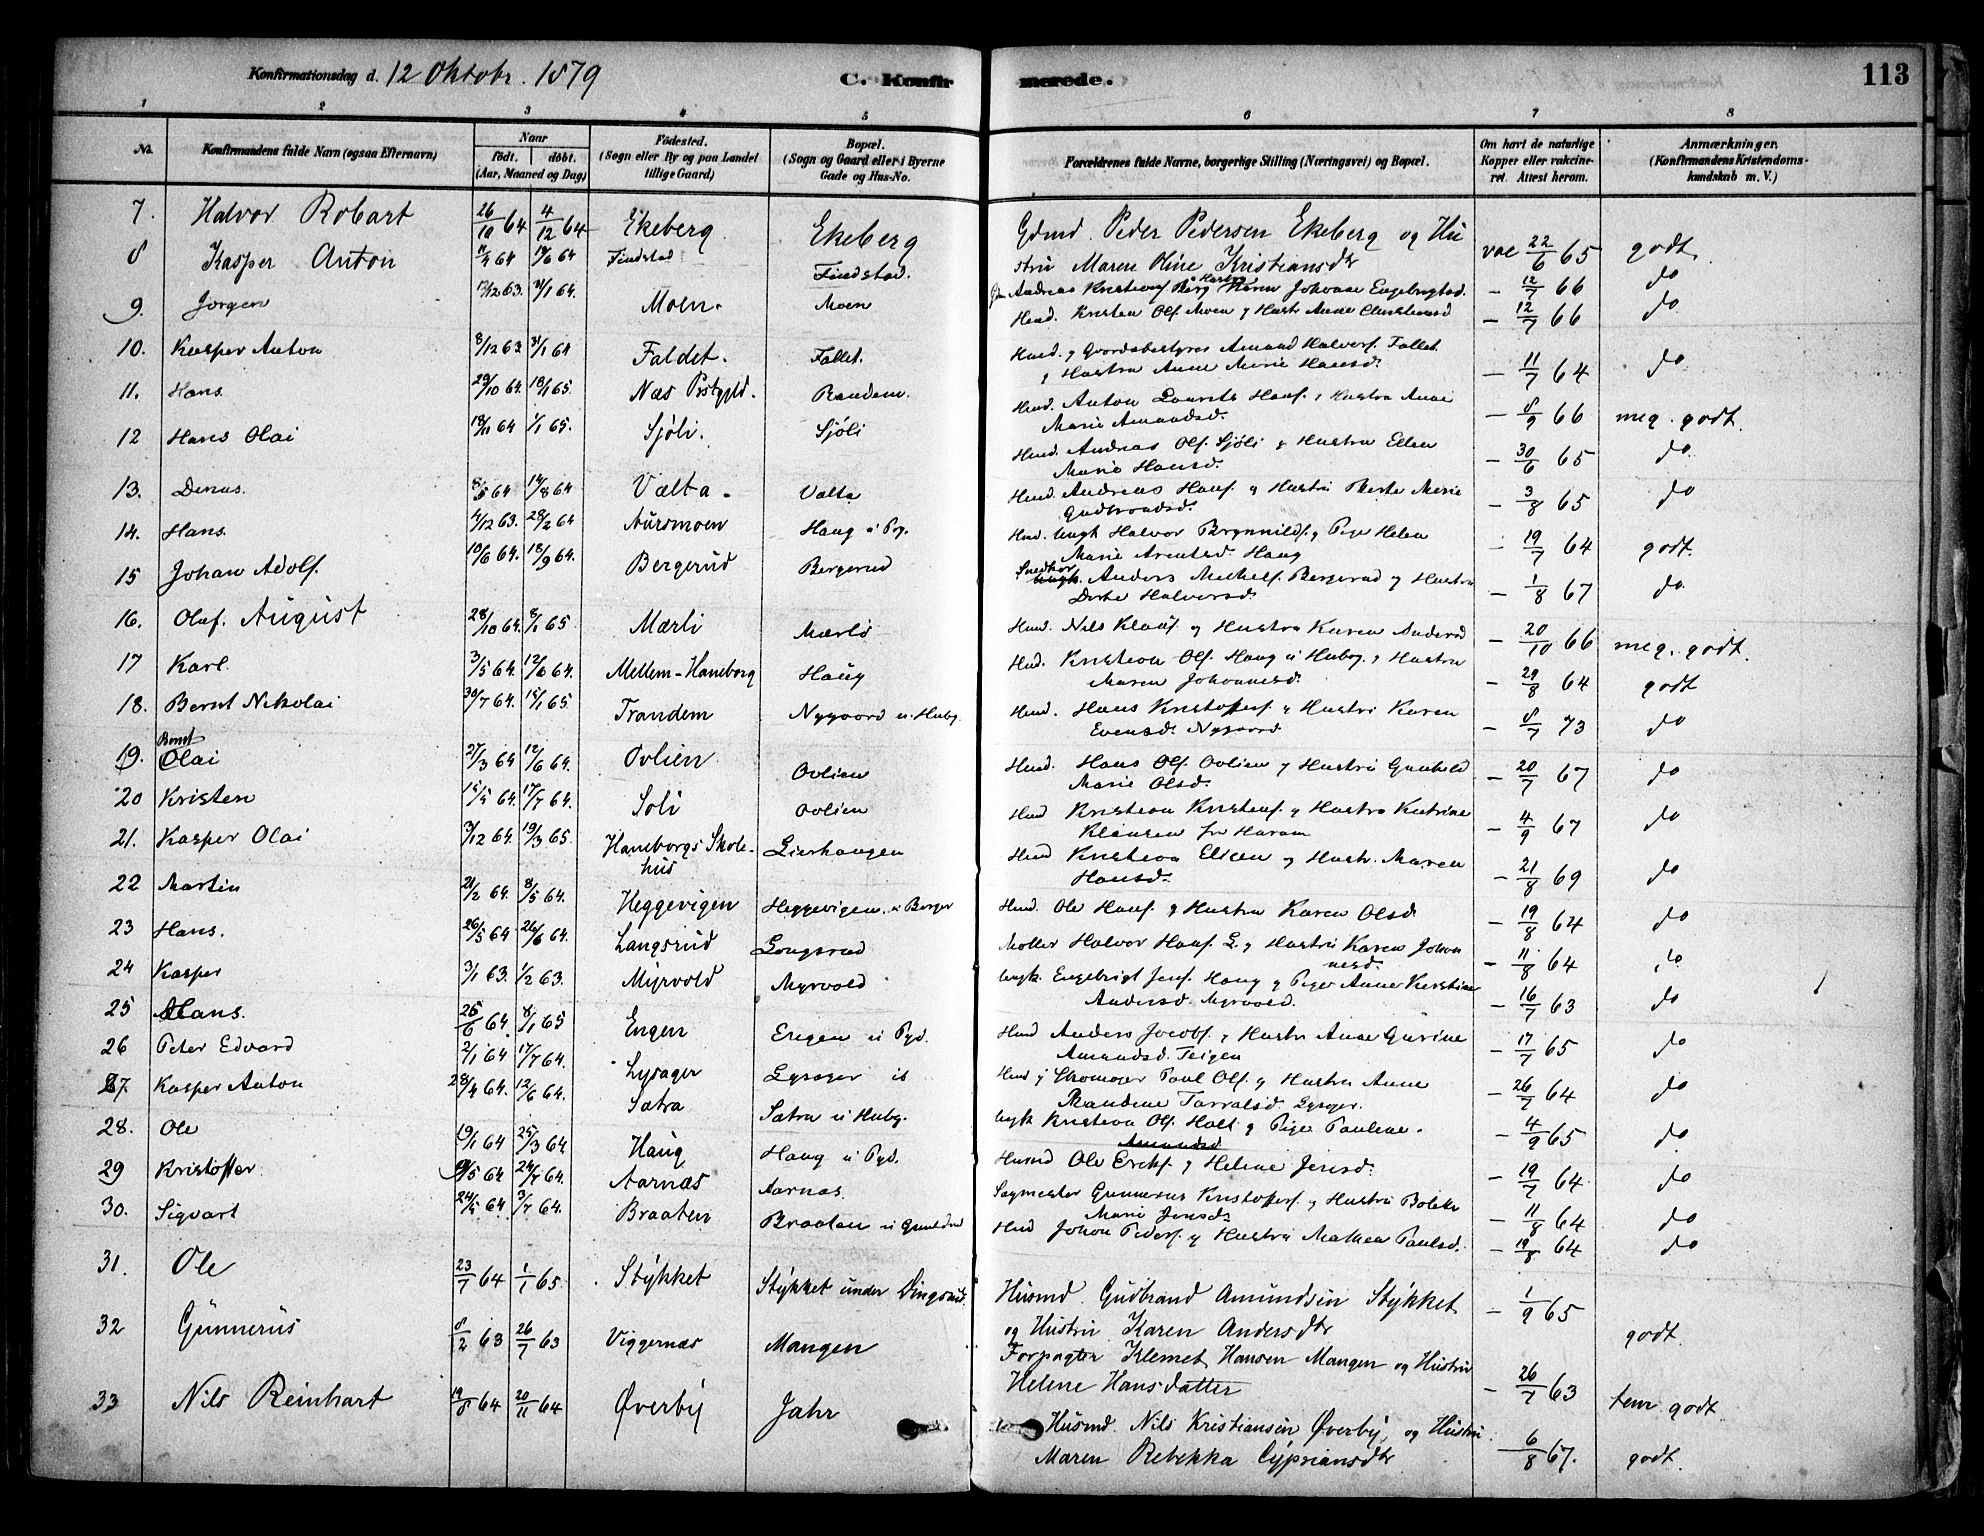 Konfirmationsdag d. 12 Oktobr. 1879
C. Konfirmerede.
113
1 2 3 4 5 6 7 8
No.
Konfirmandens fulde Navn (ogsaa Efternavn)
Naar
födt. döbt.
(Aar, Maaned og Dag)
Födested.
(Sogn eller By og paa Landet
tillige Gaard)
Bopæl.
(Sogn og Gaard eller i Byerne
Gade og Hus-No.
Forældrenes fulde Navne, borgerlige Stilling (Næringsvei) og Bopæl.
Om havt de naturlige
Kopper eller vakcine-
ret. Attest herom.
Anmærkninger.
(Konfirmandens Kristendoms-
kundskab m. V.)
7. Halvor Robart 26/10 64 4/12 64 Ekeberg Ekeberg Gdmd. Peder Pedersen Ekeberg og Hu
strü Maren Oline Kristiansdtr vac 22/6 65 godt.
8 Kasper Anton Findstad Findstad. Andreas Berg Hustru Karen Johanne Engebregtsd. - 12/7 66 do
9. Jörgen 17/12 63. 31/1 64. Moen. Moen Husd. Kristen Ols. Moen & Hustr Anne Christensd - 12/7 66 do
10. Kasper Anton 8/12 63. 31/1 64 Faldet. Fallet. Husd. & Gaardsbestyrer Amund Halvors. Fallet
& Hustru Anne Marie Hansd. - 11/7 64 do
11. Hans. 29/10 64. 18/1 65. Næs Prstgjld. Randem. Husd. Anton Laurits Hans. & Hustru Anne
Marie Amundsd. - 8/9 66 meg. godt.
12 Hans Olai 18/11 64 1/1 65. Sjöli. Sjöli Husd. Andreas Ols. Sjöli & Hustru Ellen
Marie Hansd. - 30/6 65 do
13. Denus. 8/5 64 14/8 64 Vælta. Vælta Husd. Andreas Hans. & Hustru Marie
Gudbrandsd. - 3/8 65 do
14. Hans. 4/12 63. 28/2 64 Aürsmoen Haug u Pg. Husd. Ungk Halvor Brynnilds. & Pige Helene
Marie Arentsd. Haug - 19/7 64 godt.
15 Johan Adolf. 10/6 64. 18/9 64. Bergerüd Bergerud Snedker Anders Michels. Bergerud & Hustru
Dorte Halvorsd. - 1/8 67 do
16. Oluf August 28/10 64. 8/1 65 Mærli Mærli Husd. Nils Klaüs. & Hustru Karen Andersd - 20/10 66 meg. godt.
17 Karl. 3/5 64. 12/6 64. Mellem-Haneborg Haug Husd. Kristian Ols. Haug u Habg. & Hustru
Maren Johannesd. - 29/8 64 godt
18. Bernt Nikolai 30/7 64. 15/1 65 Trandem Nygaard u Habg. Husd. Hans Kristoffers. & Hustru Karen
Evensd. Nygaard - 8/7 73 do
19. Bernt Olai 27/3 64 12/6 64. Ovlien Ovlien Husd. Hans Ols. Ovlien & Hustru Gunhild
Marie Olsd. - 20/7 67 do
20 Kristen 17/7 64. Soli Ovlien Husd Kristian Kristens. & Hustru Katrine
Klausen - 4/9 67 do
21. Kasper Olai 3/12 64. 19/3 65. Haneborgs Skole-
hüs Lierhaugen Husd Kristian & Hustr. Maren
Hansd. - 21/8 69 do
22 Martin 21/2 64. 8/5 64. Heggevigen Heggevigen u Berger Husd. Ole Hans. & Hustru Karen Olsd - 19/8 64 do
23 Hans. 26/5 64 26/6 64. Langsrüd Langsrud Møller Halvor Hans. L. & Hustru Karen Johan
nesd. - 11/8 64 do
24 Kasper 3/1 63. 1/2 63. Myrvold Myrvold Ungk. Engebrigt Jens. Haug & Pige Anne Kirstine
Andersd. Myrvold. - 16/7 63 do
25 Hans. 25/6 64. 8/1 65 Engen Engen u Pgd. Husd Anders Jacobs. & Hustru Anne Gurine
Amundsd. Teigen - 17/7 65 do
26 Peter Edvard 2/1 64 17/7 64. Lysager Lysager ib Husd & Skomager Paul Ols. & Hustru Anne
Randine Torvalsd. Lysager. - 26/7 64 do
27 Kasper Anton 28/4 64. 12/6 64. Sætra Sætra u Habg. Ungk Kristian Ols. Holt & Pige Pauline
Amundsd - 4/9 65 do
28. Ole 19/1 64 25/3 64 Haüg Haug u Pgd. Husmd Ole Ericks. & Helene Jensd. - 19/7 64 do
29 Kristoffer 24/7 64. Aarnæs Aarnæs. Sagmester Gunnerus Kristoffers. & Hustru Bolette
Marie Jensd - 11/8 64 do
30. Sigvart 24/5 64. 3/7 64. Braaten Braaten Husd Johan Peders. & Hustru Mathea Paulsd. - 19/8 64 do
31. Ole 23/7 64 1/7 65. Stykket Stykket under Dingsrud. Husmd. Gudbrand Amundsen Stykket
og Hustru Karen Andersdtr - 1/9 65 godt.
32 Günnerüs 8/2 63 26/7 63 Viggernæs Mangen Forpagter Klemet Hansen Mangen og Hüstrü
Helene Hansdatter - 26/7 63 tem. godt.
33 Nils Reinhart 19/8 64 20/11 64 Øverby Jahr Husmd. Nils Kristiansen Øverby, og Hüstrü
Maren Rebekka Cypriansdtr - 6/8 67. godt.